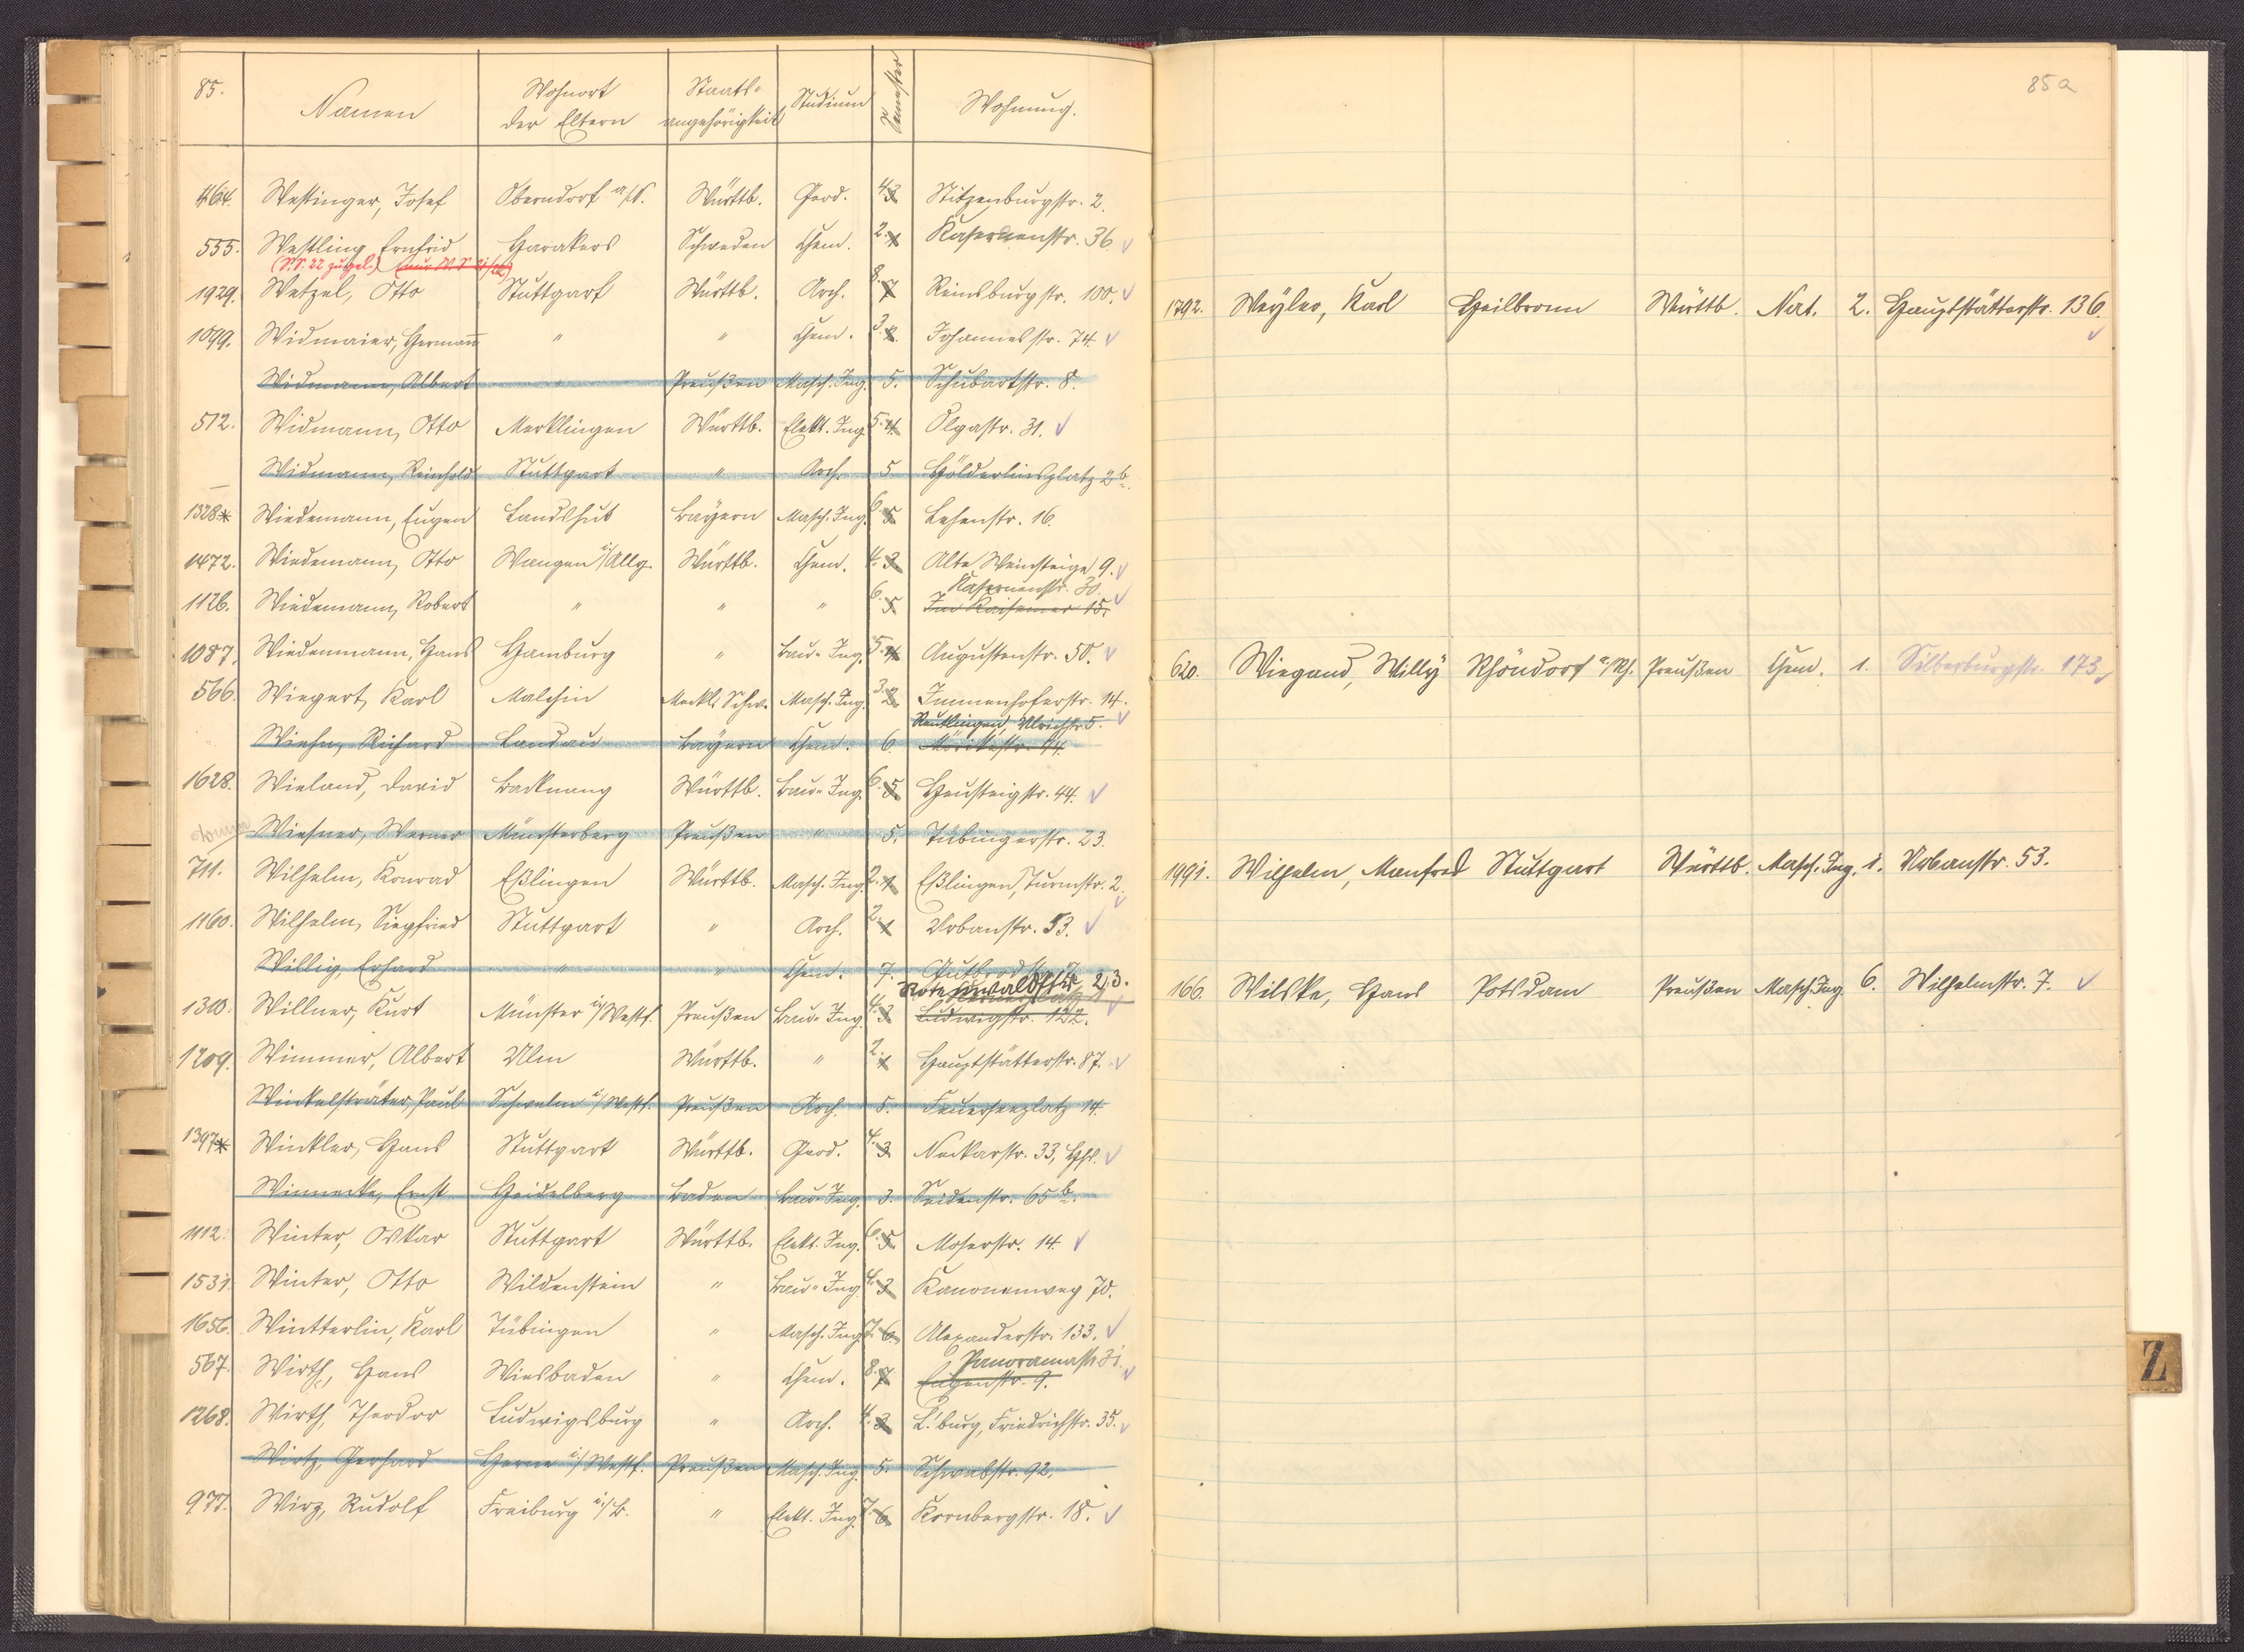 85.
Namen
Wohnort der Eltern
Staats-angehörigkeit
Studium
Semester
Wohnung.
464. Westinger, Josef Oberndorf a/N. Württb. Geod. 4. 3. Stitzenburgstr. 2.
555. Westling, Ernfrid Harakers Schweden Chem. 2. 1. Kasernenstr. 36.
(S.S. 22 zugel.) (nur W.S. 21/22)
1929. Wetzel, Otto Stuttgart Württb. Arch. 8. 7. Reinsburgstr. 100.
1099. Widmaier, Hermann " " Chem. 3. 2. Johannesstr. 74.
Widmann, Albert " Preußen Masch. Ing. 5. Schubartstr. 8.
512. Widmann, Otto Merklingen Württb. Elekt. Ing. 5. 4. Olgastr. 31.
Widmann, Reinhold Stuttgart " Arch. 5 Hölderlinsplatz 2b.
1328* Wiedemann, Eugen Landshut Bayern Masch. Ing. 6. 5. Lehenstr. 16.
1472. Wiedemann, Otto Wangen i/Allg. Württb. Chem. 4. 3. Alte Weinsteige 9.
Kasernenstr. 30.
1126. Wiedemann, Robert " " " 6. 5. Im Kaisemer 15.
1087. Wiedenmann, Hans Hamburg " Bau-Ing. 5. 4. Augustenstr. 50.
566. Wiegert, Karl Malchin Meckl. Schw. Masch. Ing. 3. 2. Immenhoferstr. 14.
Reutlingen, Ulrichstr. 5.
Wiehn, Richard Landau Bayern Chem. 6. Mörikestr. 44.
1628. Wieland, David Backnang Württb. Bau-Ing. 6. 5. Heusteigstr. 44.
Wiesner, Werner Münsterberg Preußen " 5. Tübingerstr. 23.
711. Wilhelm, Konrad Eßlingen Württb. Masch. Ing. 2. 1. Eßlingen, Turmstr. 2.
1160. Wilhelm, Siegfried Stuttgart " Arch. 2. 1 Urbanstr. 53.
Willig, Erhard " " Chem. 7. Gutbrodstr. 7.
Rotenwaldstr. 23.
1310. Willner, Kurt Münster i/Westf. Preußen Bau-Ing. 4. 3 Ludwigstr. 122.
1209. Wimmer, Albert Ulm Württb. " 2. 1 Hauptstätterstr. 87.
Winkelsträter, Paul Schwelm i/Westf. Preußen Arch. 5. Feuerseeplatz 14.
1397* Winkler, Hans Stuttgart Württb. Geod. 4. 3 Neckarstr. 33, Hhs.
Winnecke, Ernst Heidelberg Baden Bau-Ing. 3. Seidenstr. 65b.
1112. Winter, Oskar Stuttgart Württb. Elekt. Ing. 6. 5. Moserstr. 14.
1531. Winter, Otto Wildenstein " Bau-Ing. 4. 3. Kanonenweg 70.
1656. Wintterlin, Karl Tübingen " Masch. Ing. 7. 6. Alexanderstr. 133.
Panoramastr. 31.
567. Wirth, Hans Wiesbaden " Chem. 8. 7. Eugenstr. 9.
1268. Wirth, Theodor Ludwigsburg " Arch. 4. 3. L'burg, Friedrichstr. 35.
Wirtz, Gerhard Herne i/Westf. Preußen Masch. Ing. 5. Schwabstr. 92.
977. Wirz, Rudolf Freiburg i/B. " Elekt. Ing. 7. 6. Kornbergstr. 18.
85a
1792. Weyler, Karl Heilbronn Württb. Nat. 2. Hauptstätterstr. 136.
620. Wiegand, Willy Rhöndorf a/Rh. Preußen Chem. 1. Silberburgstr. 173.
1991. Wilhelm, Manfred Stuttgart Württb. Masch. Ing. 1. Urbanstr. 53.
166. Wilske, Hans Potsdam Preußen Masch. Ing. 6. Wilhelmstr. 7.
Z